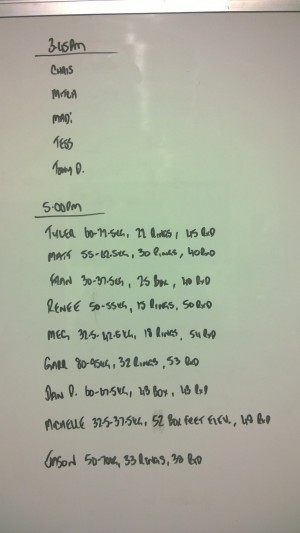 3:15pm
CHRIS
MITRA
MADi
TESS
Tommy D.
5:00pm
TYLER 60-77.5KG, 22 RINGS, 45 BxD
MATT 55-62.5KG, 30 RINGS, 40 BxD
FRAN 30-37.5KG, 25 BOX, 40 BxD
RENEE 50-55KG, 15 RINGS, 50 BxD
MEG 32.5-42.5KG, 18 RINGS, 54 BxD
80-95KG, 32 RINGS, 53 BxD
DAN P. 60-67.5KG, 43 BOX, 43 BxD
MICHELLE 32.5-37.5KG, 52 BOX FEET ELEV., 49 BxD
JASON 50-70KG, 33 RINGS, 38 BxD